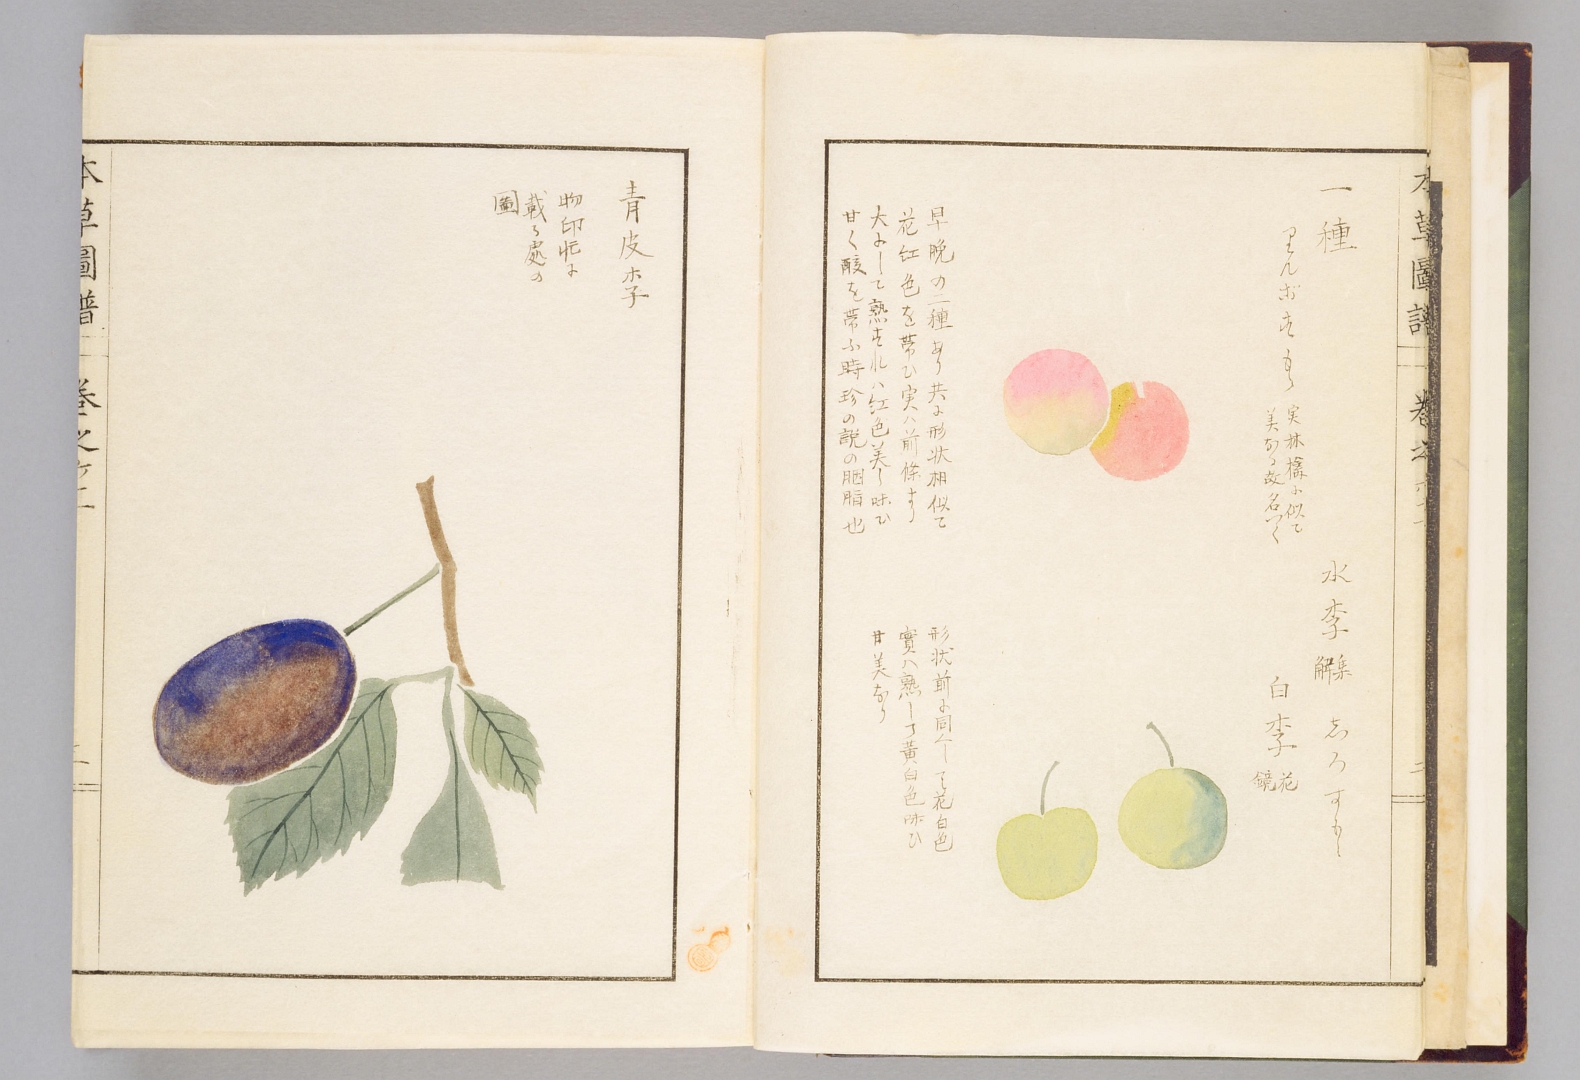 本草圖譜 巻之六十一
一種
りんごすもゝ
実林檎に似て
美なる故名づく
早晩の二種あり共に形状相似て
花紅色を帯び実ハ前條より
大にして熟すれハ紅色美し味ひ
甘く酸を帯ふ時珍の説の胭脂也
水李 集解
しろすもゝ
白李 花鏡
形状前に同くして花白色
實ハ熟して黄白色味ひ
甘美なり
青皮李
物印忙に
載る處の
圖
本草圖譜 巻之六十一